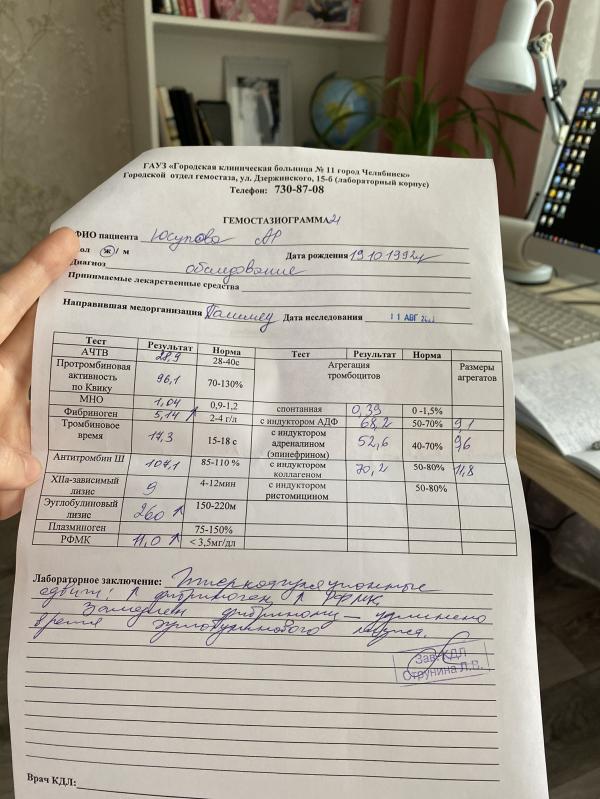 ГАУЗ «Городская клиническая больница № 11 город Челябинск»
Городской отдел гемостаза, ул. Дзержинского, 15-б (лабораторный корпус)
Телефон: 730-87-08
ГЕМОСТАЗИОГРАММА
ФИО пациента Юсупова АР
ж / м Дата рождения 19.10.1992г
Диагноз обследование
Принимаемые лекарственные средства
Направившая медорганизация Дата исследования 11 АВГ
Тест Результат Норма Тест Результат Норма Размеры агрегатов
АЧТВ 28,9 28-40с Агрегация тромбоцитов
Протромбиновая активность по Квику 96,1 70-130%
МНО 1,04 0,9-1,2 спонтанная 0,39 0 -1,5%
Фибриноген 5,14 ↑ 2-4 г/л с индуктором АДФ 68,2 50-70% 9,1
Тромбиновое время 17,3 15-18 с с индуктором адреналином (эпинефрином) 52,6 40-70% 9,6
Антитромбин III 107,1 85-110 % с индуктором коллагеном 70,2 50-80% 11,8
XIIа-зависимый лизис 9 4-12мин с индуктором ристомицином 50-80%
Эуглобулиновый лизис 260 ↑ 150-220м
Плазминоген 75-150%
РФМК 11,0 ↑ < 3,5мг/дл
Лабораторное заключение: Гиперкоагуляционные
сдвиги: ↑ фибриноген, ↑ РФМК,
Замедлен фибринолиз – удлинено
время эуглобулинового лизиса.
Зав. КДЛ
Отрунина Л.В.
Врач КДЛ: